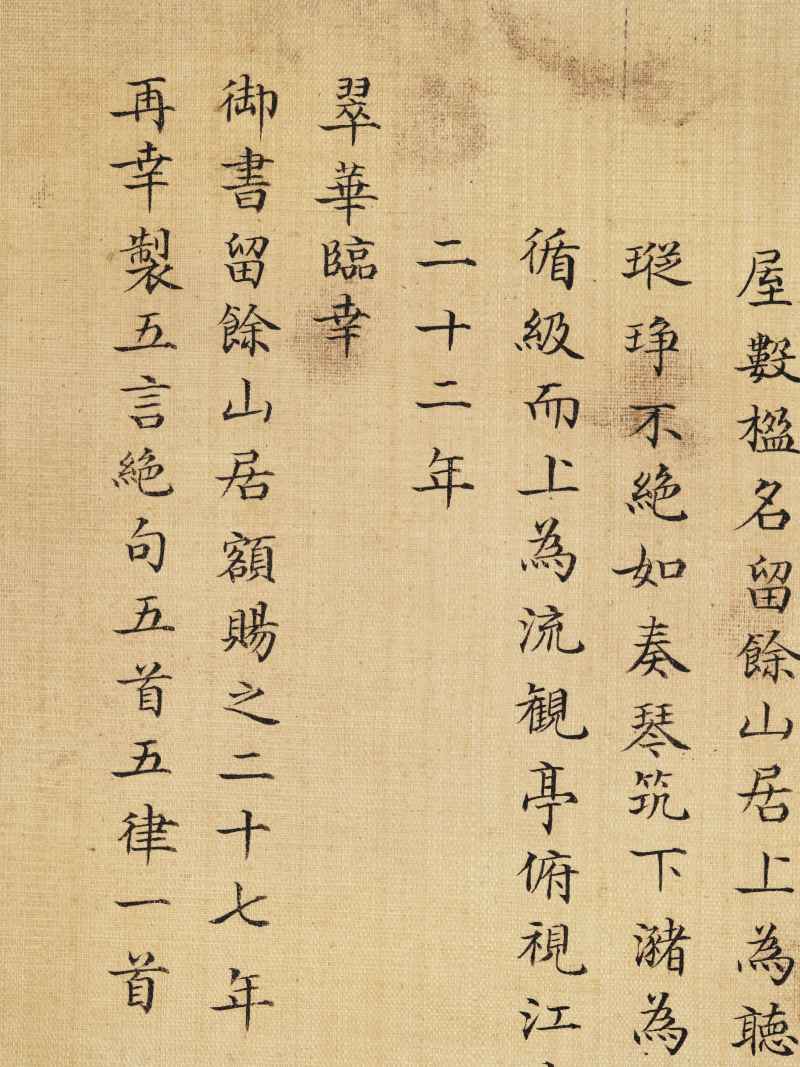 屋數楹名留餘山居上為聽
瑽琤不絶如奏琴筑下瀦為
循級而上為流觀亭俯視江
二十二年
翠華臨幸
御書留餘山居額賜之二十七年
再幸製五言絶句五首五律一首